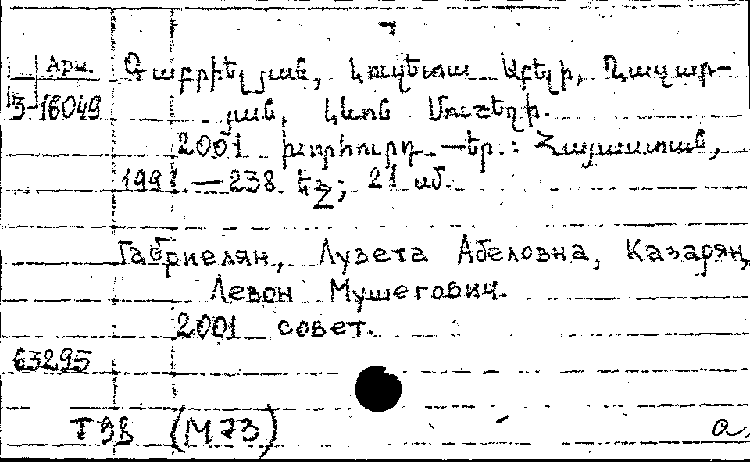 Արմ. Գաբրիելյան, Լուզետա Աբելի, Ղազար-
3-16049 յան, Լևոն Մուշեղի.
2001 խորհուրդ. — Եր.: Հայաստան,
1991. — 238 էջ; 21 սմ.
Габриелян, Лузета Абеловна, Казарян,
Левон Мушегович.
2001 совет.
63295
T 9В (М 73) а.